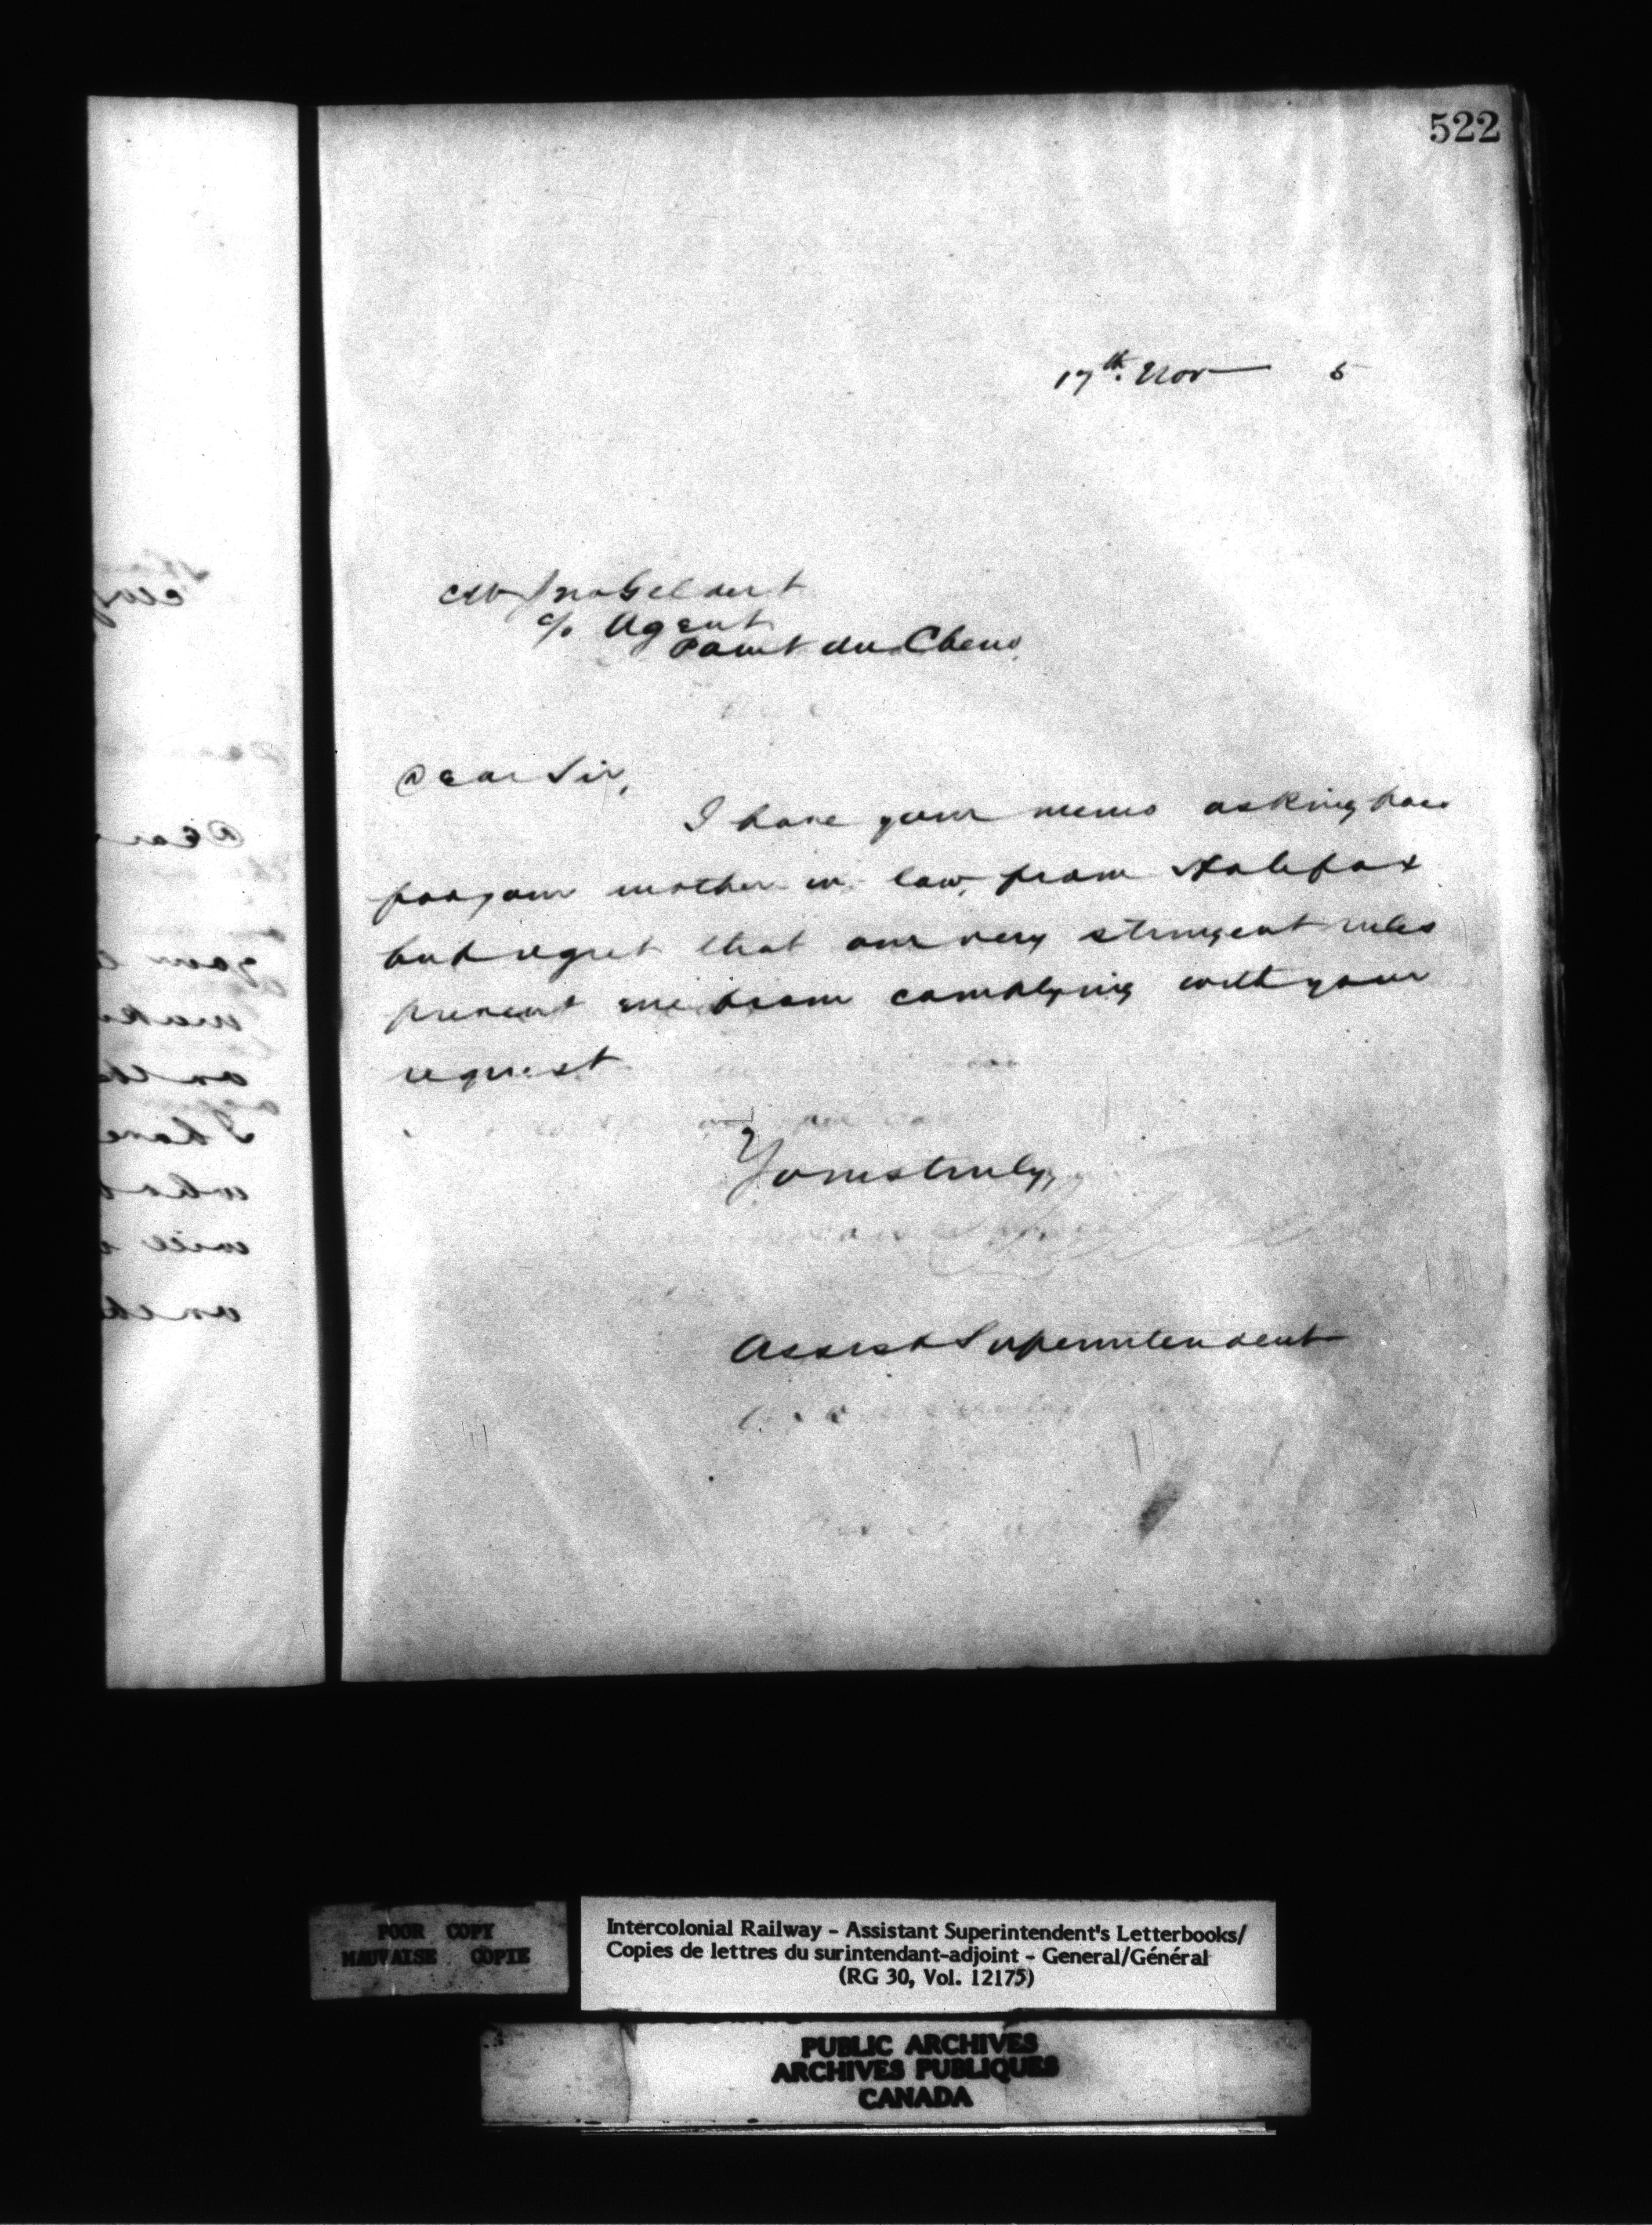 522
17th. Nov 5
Mr Jno Geldert
c/o Agent
Point du Chene
Dear Sir,
I have your memo asking pass
for your mother in law, from Halifax
but regret that our very stringent rules
prevent me from complying with your
request
Yours truly,
Assist Superintendent
Dear
your
I have
will
POOR COPY
MAUVAISE COPIE
Intercolonial Railway - Assistant Superintendent's Letterbooks/
Copies de lettres du surintendant-adjoint - General/Général
(RG 30, Vol. 12175)
PUBLIC ARCHIVES
ARCHIVES PUBLIQUES
CANADA